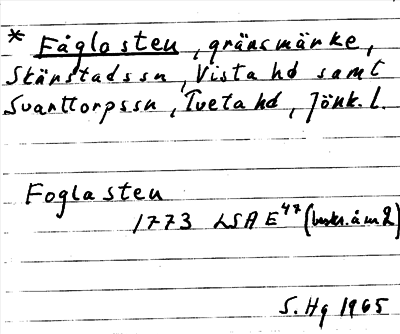 * Fåglosten, gränsmärke,
Skärstadssn, Vista hd samt
Svarttorpssn, Tveta hd, Jönk. l.
Foglasten
1773 LSA E47 (beskr. å m 2)
S. Hg 1965